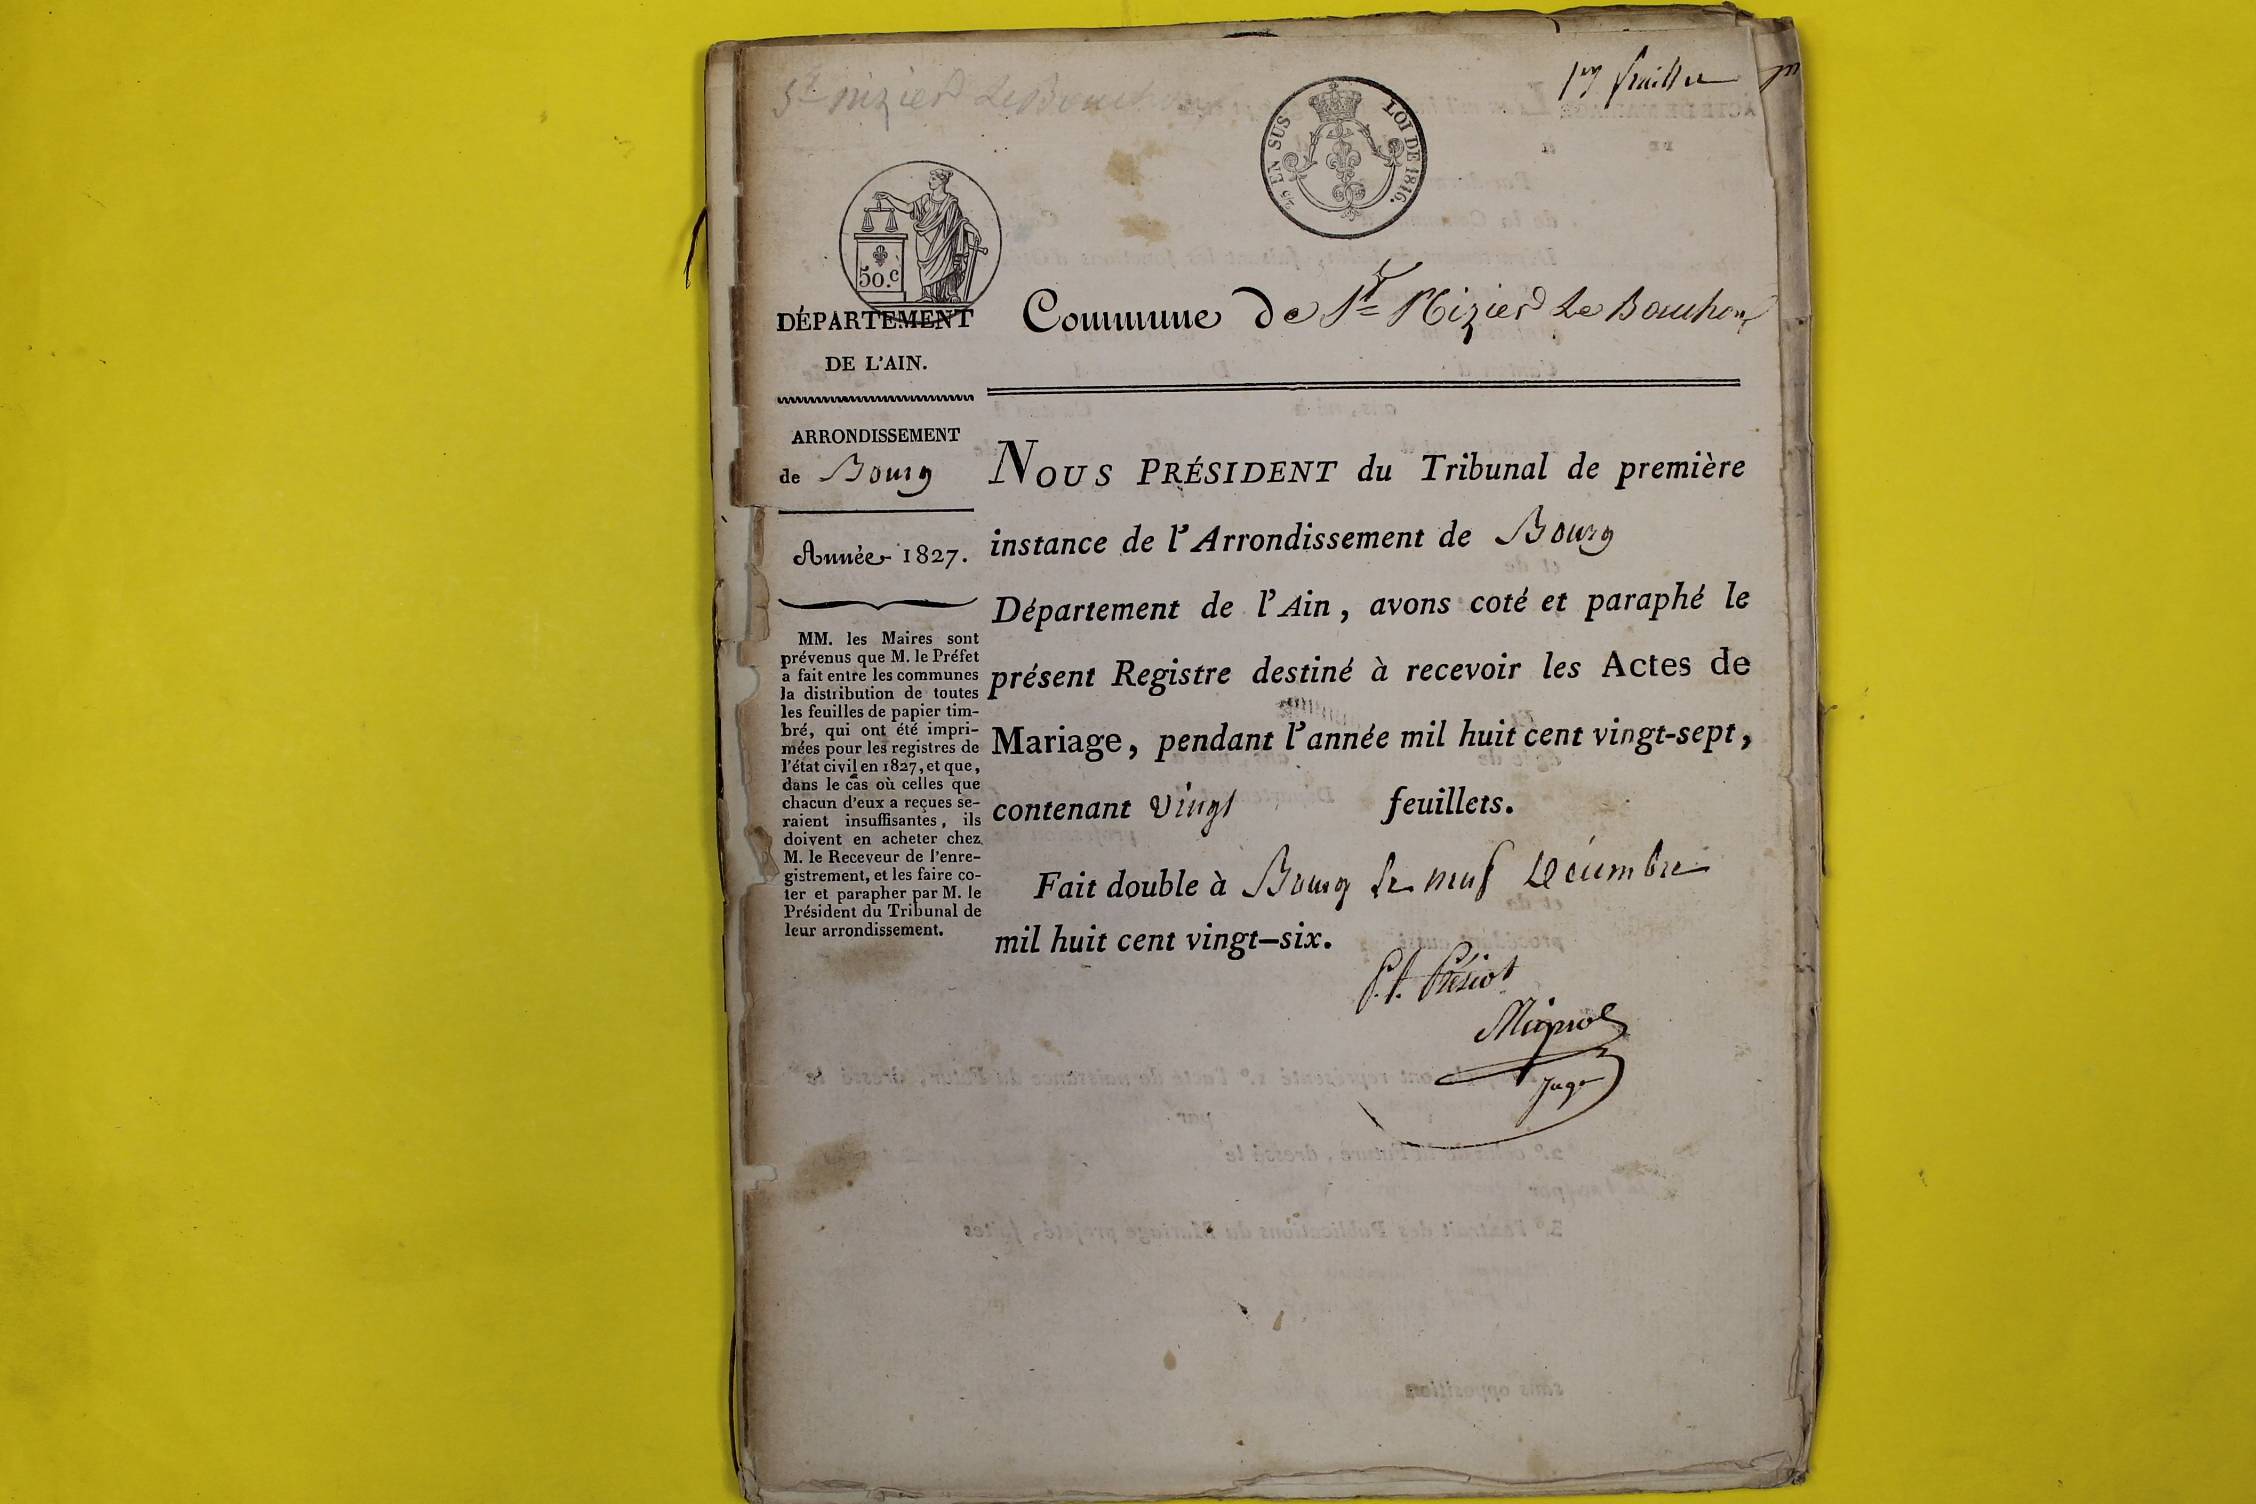 St nizier Le Bouchoux
1er feuillet
25 EN SUS LOI DE 1816.
50.c
DÉPARTEMENT
DE L'AIN.
Commune de St Nizier Le Bouchoux
ARRONDISSEMENT
de Bourg
Année 1827.
MM. les Maires sont
prévenus que M. le Préfet
a fait entre les communes
la distribution de toutes
les feuilles de papier tim-
bré, qui ont été impri-
mées pour les registres de
l'état civil en 1827, et que,
dans le cas où celles que
chacun d'eux a reçues se-
raient insuffisantes, ils
doivent en acheter chez
M. le Receveur de l'enre-
gistrement, et les faire co-
ter et parapher par M. le
Président du Tribunal de
leur arrondissement.
NOUS PRÉSIDENT du Tribunal de première
instance de l'Arrondissement de Bourg
Département de l'Ain, avons coté et paraphé le
présent Registre destiné à recevoir les Actes de
Mariage, pendant l'année mil huit cent vingt-sept,
contenant vingt feuillets.
Fait double à Bourg le neuf Décembre
mil huit cent vingt-six.
Juge